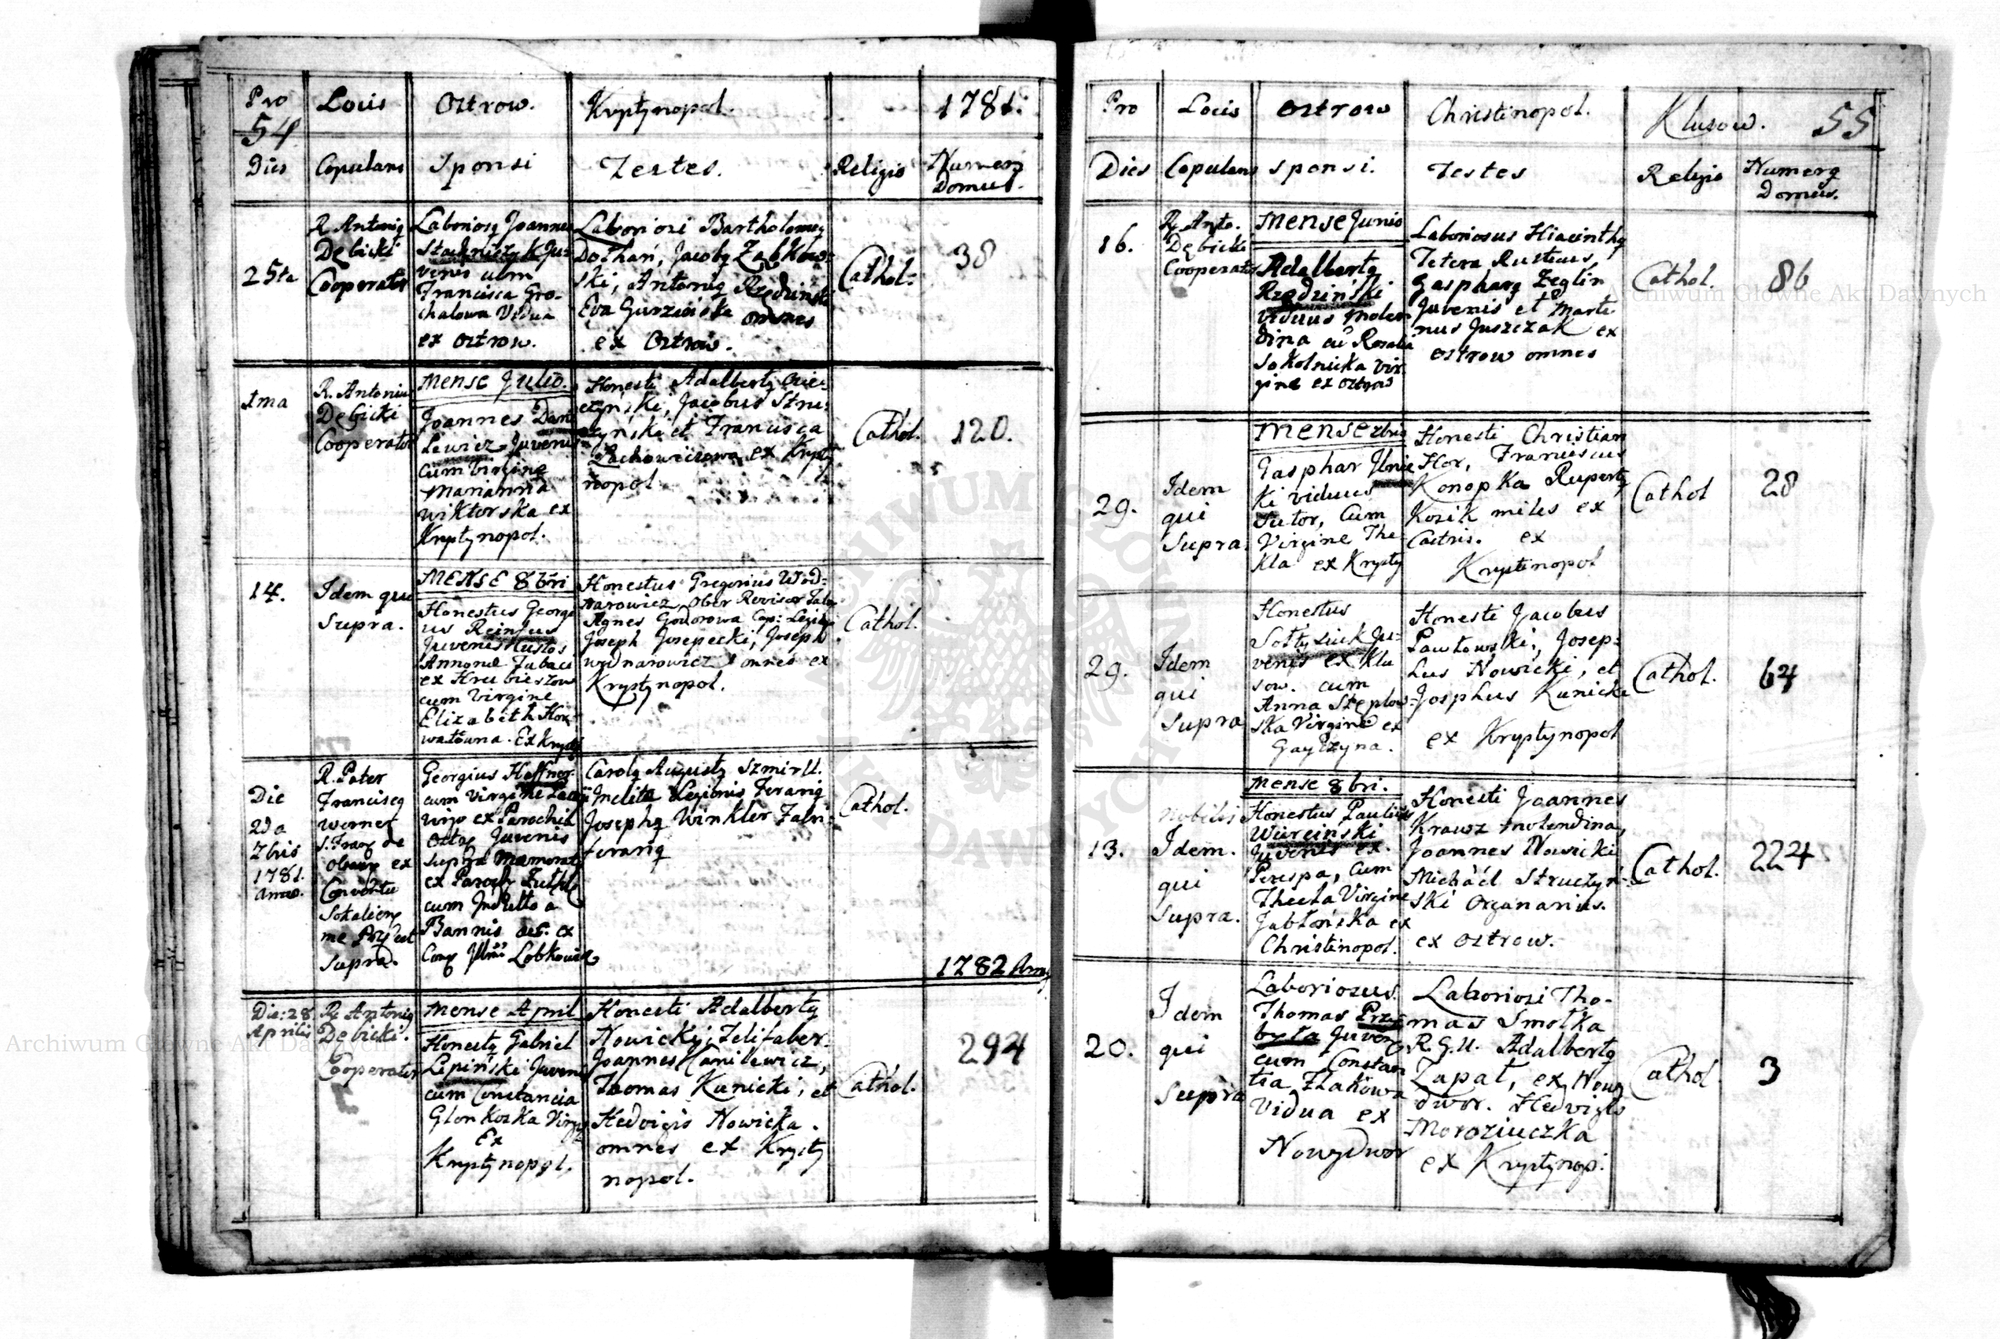 Pro Locis Ostrow. Kryptynopol. 1781.
54
Dies Copulans Sponsi Testes. Religio Numeri
Domus.
25ta
R. Antonig
Dębicki
Cooperator
Laboriosg Joannes
Juvenis cum
Francisca Gro-
chalowa Vidua
ex Ostrow.
Laboriosi Bartholomeg
Dothań, Jacobg Zabkow-
ski, Antonig Rzędziński
Eva Gurzińska omnes
ex Ostrow.
Cathol.
38
1ma
R. Antonius
Dębicki
Cooperator
Mense Julio.
Joannes Dani
lewicz Juvenis
cum Virgine
Marianna
Wiktorska ex
Kryptynopol.
Honesti Adalbertg
Jacobus Stru-
czyński et Francisca
Lachowiczowa ex Krypty
nopol.
Cathol.
120.
14.
Idem qui
Supra.
MENSE 8bri
Honestus Georgi
us Reinfus
Juvenis Custos
Annonæ Tabaci
ex Hrubieszow
cum Virgine
Elizabeth Hor-
watowna. Ex Krypty
Honestus Gregorius Wod-
narowicz Ober Revisor
Agnes Godorowa
Joseph Josepecki, Joseph
Wydnarowicz omnes ex
Krystynopol.
Cathol.
Die
29a
7bris
1781.
Anno.
R. Pater
Franciscg
Werner
S. Franc de
ex
Conventu
Sokalien
Supra.
Georgius Haffner
cum Virgine
virgo ex Parochia
Juvenis
Supra
ex Paroch
cum Indulto a
Bannis ex
Lobkowicz
Carolg Augustg Szmirll.
Inclitæ Legionis Ferarig
Josephg Winkler
ferarig
Cathol.
1782 Anng
Die: 28.
Aprilis
R. Antonig
Dębicki.
Cooperator
Mense April
Honestg Gabriel
Lepiński Juvenis
cum Constancia
Glonkoska Virgi
Ex
Kryptynopol.
Honesti Adalbertg
Nowicki, Telifaber.
Joannes Canilewicz,
Thomas Kunicki, et
Hedvigis Nowicka.
omnes ex Krysty
nopol.
Cathol.
294
Pro Locis Ostrow Christinopol. Klusow. 55
Dies Copulans Sponsi. Testes Religio Numerg
Domus.
16.
R. Anto.
Dębicki
Cooperator
Mense Junio
Adalbertg
Rzędziński
Viduus molen
dina cū Rosalia
Sokolnicka vir
gine ex Ostrow
Laboriosus Hiacinthg
Tetera Rusticus,
Gasparg Zeglin
Juvenis et Marti
nus Juszczak ex
Ostrow omnes
Cathol.
86
29.
Idem
qui
Supra.
Mense 7bris
Gasphar Ilnic
ki viduus
Sutor, Cum
Virgine The
kla ex Krypty
Honesti Christian
Hor, Franciscus
Konopka Rupertg
Kozik miles ex
Castris. ex
Kryptinopol
Cathol
28
29.
Idem
qui
Supra
Honestus
Sołtysiuk Ju-
venis ex Klu
sow. cum
Anna Steplow-
ska Virgine ex
Honesti Jacobus
Pawłowski, Josep-
hus Nowicki, et
Josphus Kunicki
ex Kryptynopol
Cathol.
64
13.
Nobilis
Idem.
qui
Supra.
Mense 8bri.
Honestus Paulus
Wurciński
Juvenis ex
Perespa, Cum
Thecla Virgine
Jabłońska ex
Christinopol.
Honesti Joannes
Krausz molendina,
Joannes Nowicki
Michäel Struczyń-
ski Organarius.
ex Ostrow.
Cathol.
224
20.
Idem
qui
Supra
Laboriosus.
Thomas Prz-
byla Juven
cum Constan
tia Zlakowa
Vidua ex
Nowydwor
Laboriosi Tho-
mas Smolka
R.G.U. Adalbertg
Zapał, ex Nowy
dwor. Hedvigis
Moroziuczka
ex Kryptynop:
Cathol
3
Archiwum Główne Akt Dawnych
Archiwum Główne Akt Dawnych
ARCHIWUM GŁÓWNE AKT DAWNYCH